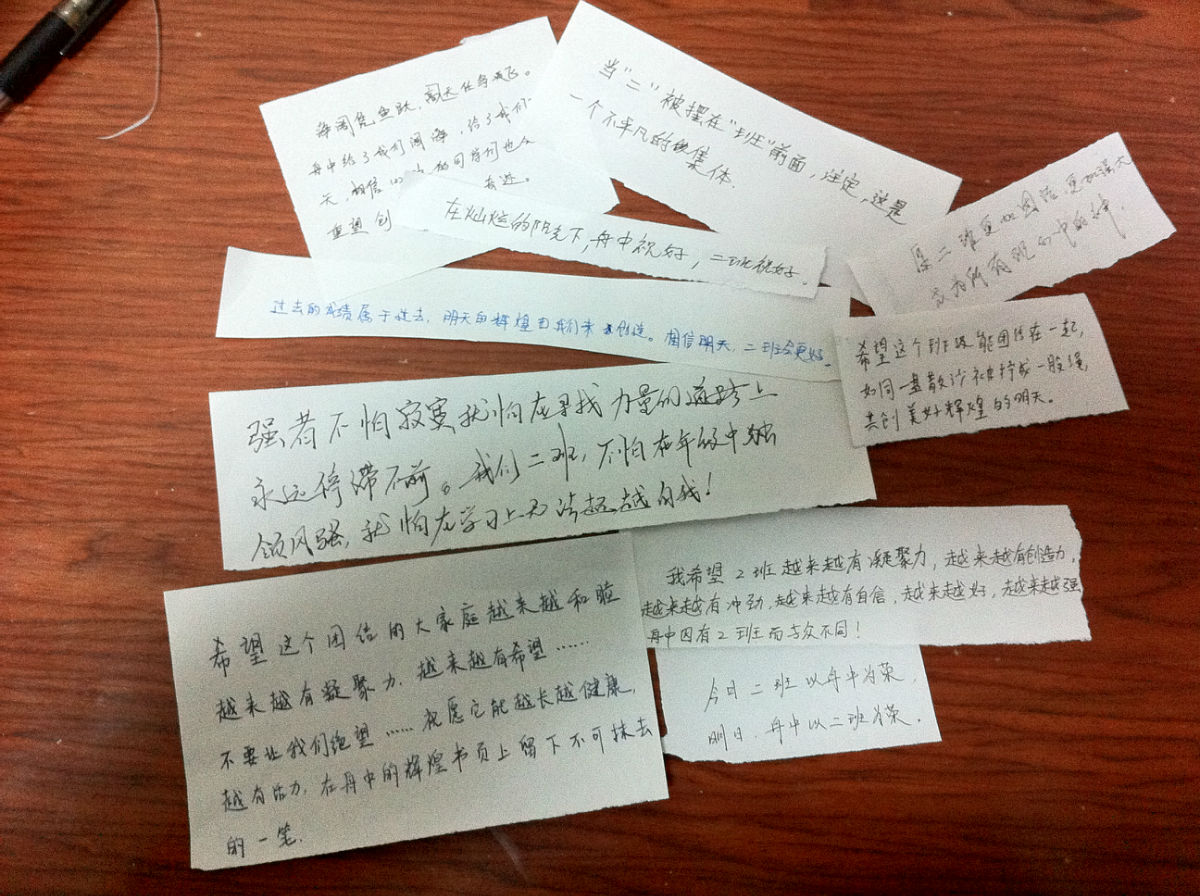 海阔凭鱼跃，高天任鸟飞。
舟中给了我们阔海，给了我们
天，相信 的同学们也会
重望 创
当“二”被摆在“班”前面，注定，这是
一个不平凡的集体.
在灿烂的阳光下，舟中很好，二班很好。
过去的成绩属于过去，明天的辉煌由我们来创造。相信明天，二班会更好。
二班更加团结，更加强大
成为所有班级中的
希望这个班级能团结在一起，
如同一盘散沙被拧成一股绳
共创美好辉煌的明天。
强者不怕寂寞就怕在寻找力量的道路上
永远停滞不前。我们二班，不怕在年级中独
领风骚，就怕在学习上无法超越自我！
我希望2班越来越有凝聚力，越来越有创造力，
越来越有冲劲，越来越有自信，越来越好，越来越强
舟中因有2班而与众不同！
希望这个团结的大家庭越来越和睦
越来越有凝聚力，越来越有希望……
不要让我们绝望……祝愿它能越长越健康，
越有活力，在舟中的辉煌书页上留下不可抹去
的一笔.
今日二班以舟中为荣，
明日，舟中以二班为荣.